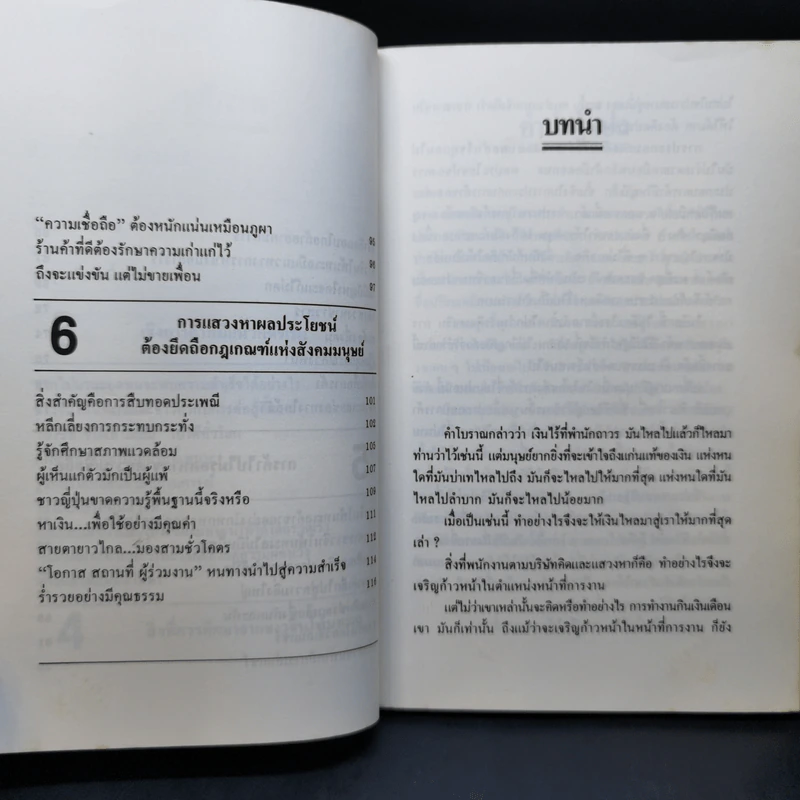 “ความเชื่อถือ” ต้องหนักแน่นเหมือนภูผา 95
ร้านค้าที่ดีต้องรักษาความเก่าแก่ไว้ 96
ถึงจะแข่งขัน แต่ไม่ขายเพื่อน 97
6
การแสวงหาผลประโยชน์
ต้องยึดถือกฎเกณฑ์แห่งสังคมมนุษย์
สิ่งสำคัญคือการสืบทอดประเพณี 101
หลีกเลี่ยงการกระทบกระทั่ง 102
รู้จักศึกษาสภาพแวดล้อม 105
ผู้เห็นแก่ตัวมักเป็นผู้แพ้ 107
ชาวญี่ปุ่นขาดความรู้พื้นฐานนี้จริงหรือ 109
หาเงิน...เพื่อใช้อย่างมีคุณค่า 111
สายตายาวไกล...มองสามชั่วโคตร 112
“โอกาส สถานที่ ผู้ร่วมงาน” หนทางนำไปสู่ความสำเร็จ 114
ร่ำรวยอย่างมีคุณธรรม 116
บทนำ
คำโบราณกล่าวว่า เงินไร้ที่พำนักถาวร มันไหลไปแล้วก็ไหลมา
ท่านว่าไว้เช่นนี้ แต่มนุษย์ยากยิ่งที่จะเข้าใจถึงแก่นแท้ของเงิน แห่งหน
ใดที่มันบ่าเทไหลไปถึง มันก็จะไหลไปให้มากที่สุด แห่งหนใดที่มัน
ไหลไปลำบาก มันก็จะไหลไปน้อยมาก
เมื่อเป็นเช่นนี้ ทำอย่างไรจึงจะให้เงินไหลมาสู่เราให้มากที่สุด
เล่า ?
สิ่งที่พนักงานตามบริษัทคิดและแสวงหาก็คือ ทำอย่างไรจึงจะ
เจริญก้าวหน้าในตำแหน่งหน้าที่การงาน
แต่ไม่ว่าเขาเหล่านั้นจะคิดหรือทำอย่างไร การทำงานกินเงินเดือน
เขา มันก็เท่านั้น ถึงแม้ว่าจะเจริญก้าวหน้าในหน้าที่การงาน ก็ยัง